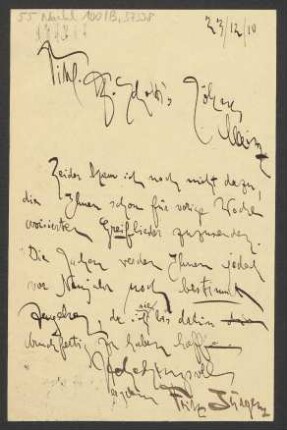 55 Nachl 100/B, 37538
23/12/10
Titl. B. Schott's Söhne,
Mainz
Leider kam ich noch nicht dazu,
die Ihnen schon für vorige Woche
avisierten Greiflieder zuzusenden.
Die Sachen werden Ihnen jedoch
vor Neujahr noch bestimmt
zugehen, da ich sie bis dahin
druckfertig zu haben hoffe.
Hochachtungsvoll
Fritz Jürgens